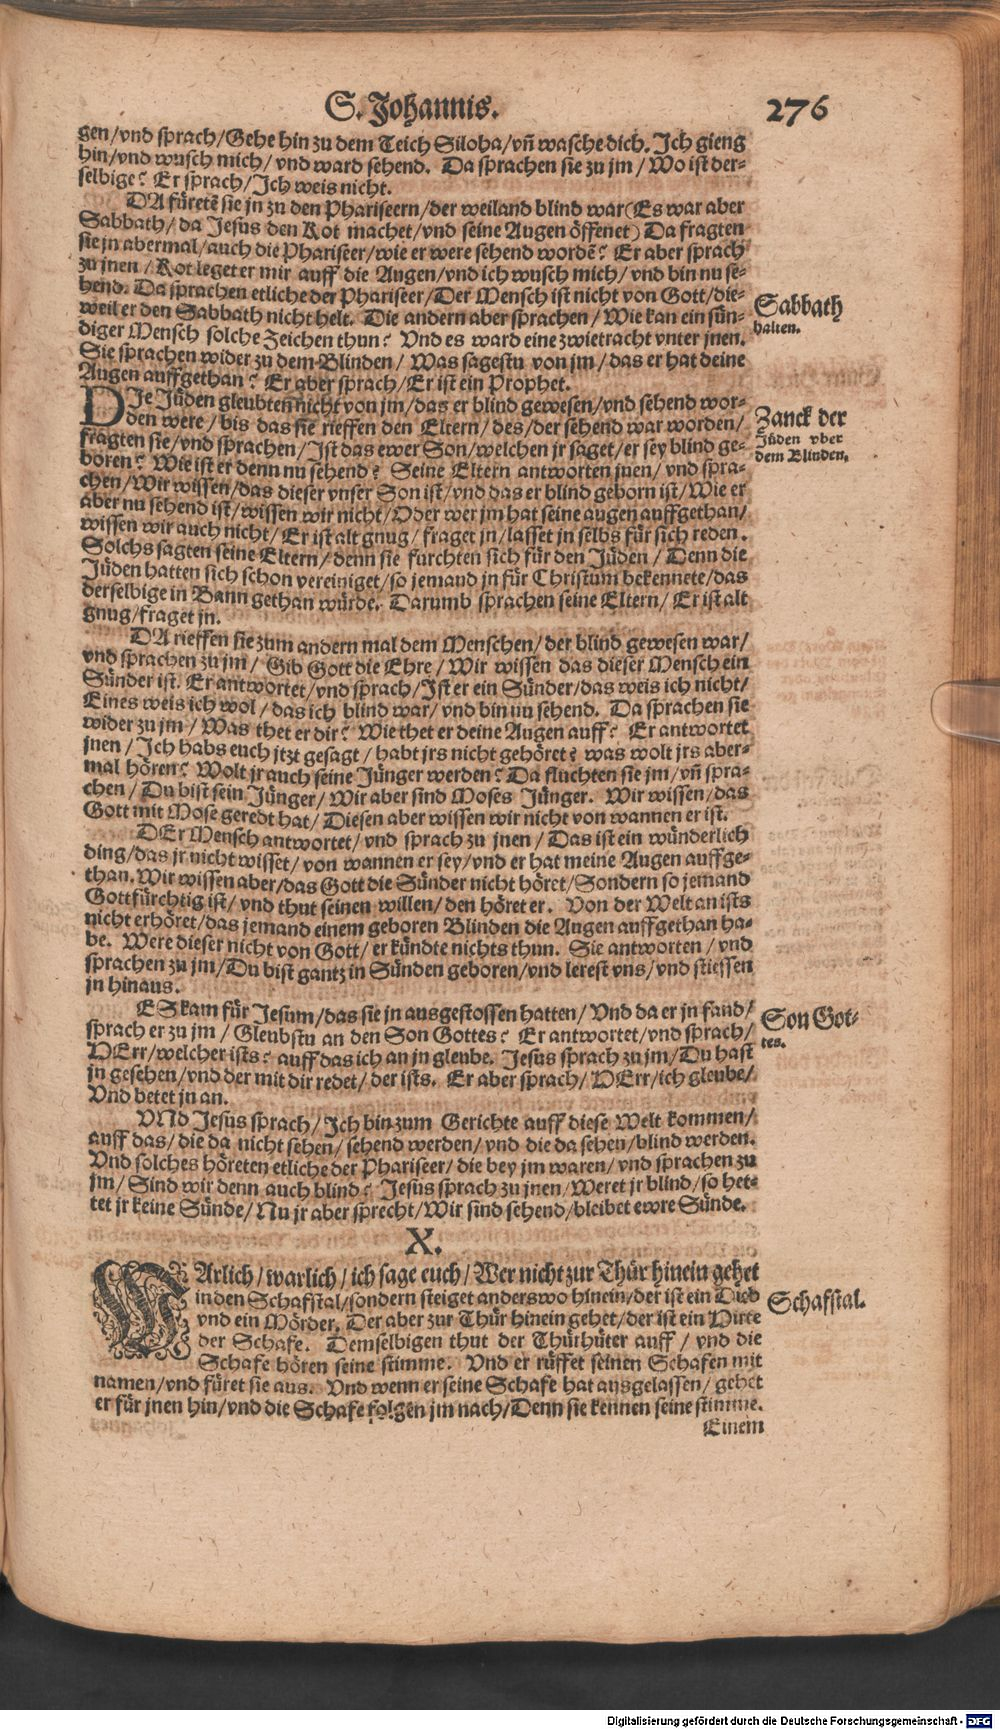 S. Johannis.
276
gen/vnd sprach/Gehe hin zu dem Teich Siloha/vñ wasche dich. Ich gieng
hin/vnd wusch mich/vnd ward sehend. Da sprachen sie zu jm/Wo ist der-
selbige? Er sprach/Ich weis nicht.
DA füretẽ sie jn zu den Phariseern/der weiland blind war (Es war aber
Sabbath/da Jesus den Kot machet/vnd seine Augen öffenet) Da fragten
sie jn abermal/auch die Phariseer/wie er were sehend wordẽ? Er aber sprach
zu jnen/Kot leget er mir auff die Augen/vnd ich wusch mich/vnd bin nu se-
hend. Da sprachen etliche der Phariseer/Der Mensch ist nicht von Gott/die-
weil er den Sabbath nicht helt. Die andern aber sprachen/Wie kan ein sün-
diger Mensch solche Zeichen thun? Vnd es ward eine zwietracht vnter jnen.
Sie sprachen wider zu dem Blinden/Was sagestu von jm/das er hat deine
Augen auffgethan? Er aber sprach/Er ist ein Prophet.
Sabbath
halten.
DIe Jüden gleubten nicht von jm/das er blind gewesen/vnd sehend wor-
den were/bis das sie rieffen den Eltern/des/der sehend war worden/
fragten sie/vnd sprachen/Ist das ewer Son/welchen jr saget/er sey blind ge-
boren? Wie ist er denn nu sehend? Seine Eltern antworten jnen/vnd spra-
chen/Wir wissen/das dieser vnser Son ist/vnd das er blind geborn ist/Wie er
aber nu sehend ist/wissen wir nicht/Oder wer jm hat seine augen auffgethan/
wissen wir auch nicht/Er ist alt gnug/fraget jn/lasset jn selbs für sich reden.
Solchs sagten seine Eltern/denn sie furchten sich für den Jüden/Denn die
Jüden hatten sich schon vereiniget/so jemand jn für Christum bekennete/das
derselbige in Bann gethan würde. Darumb sprachen seine Eltern/Er ist alt
gnug/fraget jn.
Zanck der
Jüden vber
dem Blinden.
DA rieffen sie zum andern mal dem Menschen/der blind gewesen war/
vnd sprachen zu jm/Gib Gott die Ehre/Wir wissen das dieser Mensch ein
Sünder ist. Er antwortet/vnd sprach/Ist er ein Sünder/das weis ich nicht/
Eines weis ich wol/das ich blind war/vnd bin nu sehend. Da sprachen sie
wider zu jm/Was thet er dir? Wie thet er deine Augen auff? Er antwortet
jnen/Ich habs euch jtzt gesagt/habt jrs nicht gehöret? was wolt jrs aber-
mal hören? Wolt jr auch seine Jünger werden? Da fluchten sie jm/vñ spra-
chen/Du bist sein Jünger/Wir aber sind Moses Jünger. Wir wissen/das
Gott mit Mose geredt hat/Diesen aber wissen wir nicht von wannen er ist.
DEr Mensch antwortet/vnd sprach zu jnen/Das ist ein wünderlich
ding/das jr nicht wisset/von wannen er sey/vnd er hat meine Augen auffge-
than. Wir wissen aber/das Gott die Sünder nicht höret/Sondern so jemand
Gottfürchtig ist/vnd thut seinen willen/den höret er. Von der Welt an ists
nicht erhöret/das jemand einem geboren Blinden die Augen auffgethan ha-
be. Were dieser nicht von Gott/er kündte nichts thun. Sie antworten/vnd
sprachen zu jm/Du bist gantz in Sünden geboren/vnd lerest vns/vnd stiessen
jn hinaus.
ES kam für Jesum/das sie jn ausgestossen hatten/Vnd da er jn fand/
sprach er zu jm/Gleubstu an den Son Gottes? Er antwortet/vnd sprach/
HErr/welcher ists? auff das ich an jn gleube. Jesus sprach zu jm/Du hast
jn gesehen/vnd der mit dir redet/der ists. Er aber sprach/HErr/ich gleube/
Vnd betet jn an.
Son Got-
tes.
VNd Jesus sprach/Ich bin zum Gerichte auff diese Welt kommen/
auff das/die da nicht sehen/sehend werden/vnd die da sehen/blind werden.
Vnd solches höreten etliche der Phariseer/die bey jm waren/vnd sprachen zu
jm/Sind wir denn auch blind? Jesus sprach zu jnen/Weret jr blind/so het-
tet jr keine Sünde/Nu jr aber sprecht/Wir sind sehend/bleibet ewre Sünde.
X.
WArlich/warlich/ich sage euch/Wer nicht zur Thür hinein gehet
in den Schafstal/sondern steiget anderswo hinein/der ist ein Dieb
vnd ein Mörder. Der aber zur Thür hinein gehet/der ist ein Hirte
der Schafe. Demselbigen thut der Thürhüter auff/vnd die
Schafe hören seine stimme. Vnd er rüffet seinen Schafen mit
namen/vnd füret sie aus. Vnd wenn er seine Schafe hat ausgelassen/gehet
er für jnen hin/vnd die Schafe folgen jm nach/Denn sie kennen seine stimme.
Schafstal.
Einem
Digitalisierung gefördert durch die Deutsche Forschungsgemeinschaft - DFG